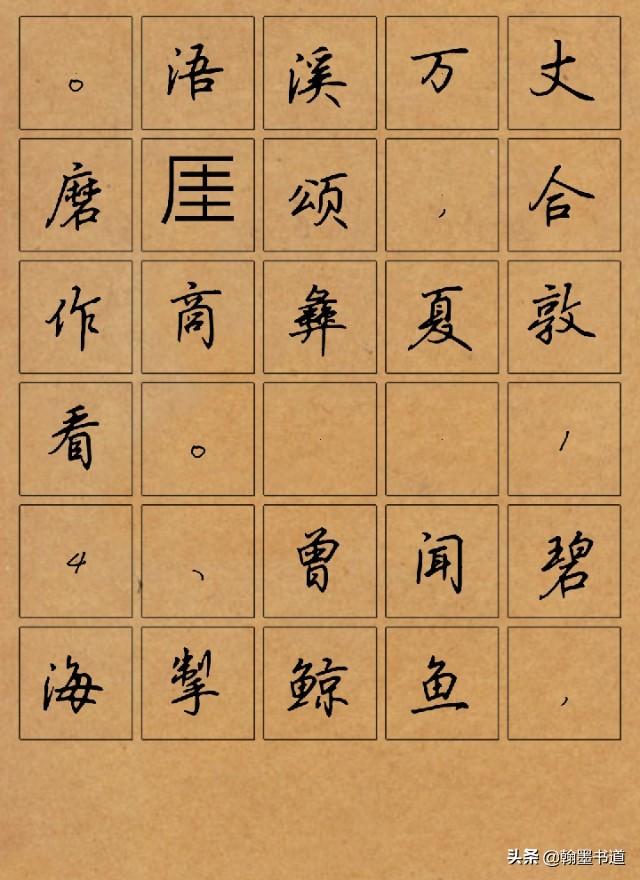 。浯溪万丈
磨厓颂,合
作商彝夏敦
看。··1
4、曾闻碧
海掣鲸鱼,
头条 @翰墨书道